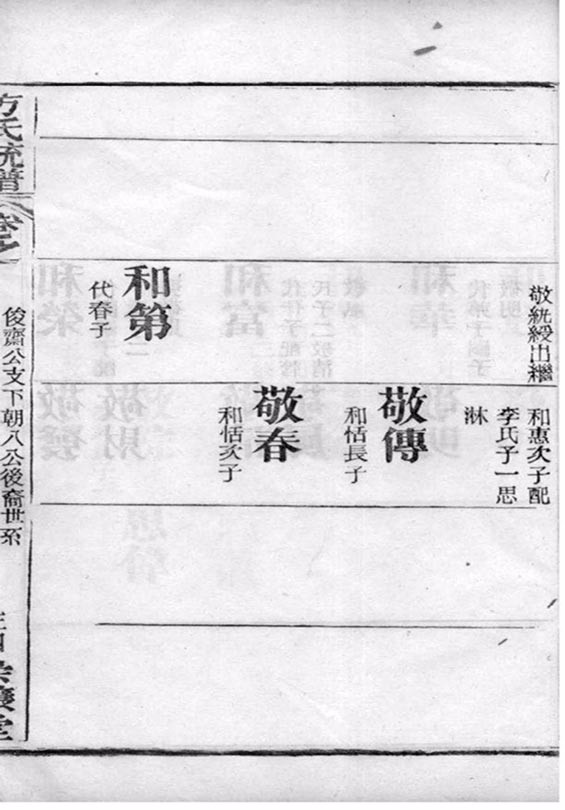 敬統綬出繼
和惠次子配
李氏子一思
淋
敬傳
和恬長子
敬春
和恬次子
和第
代春子
方氏統譜
卷之
俊齋公支下朝八公後裔世系